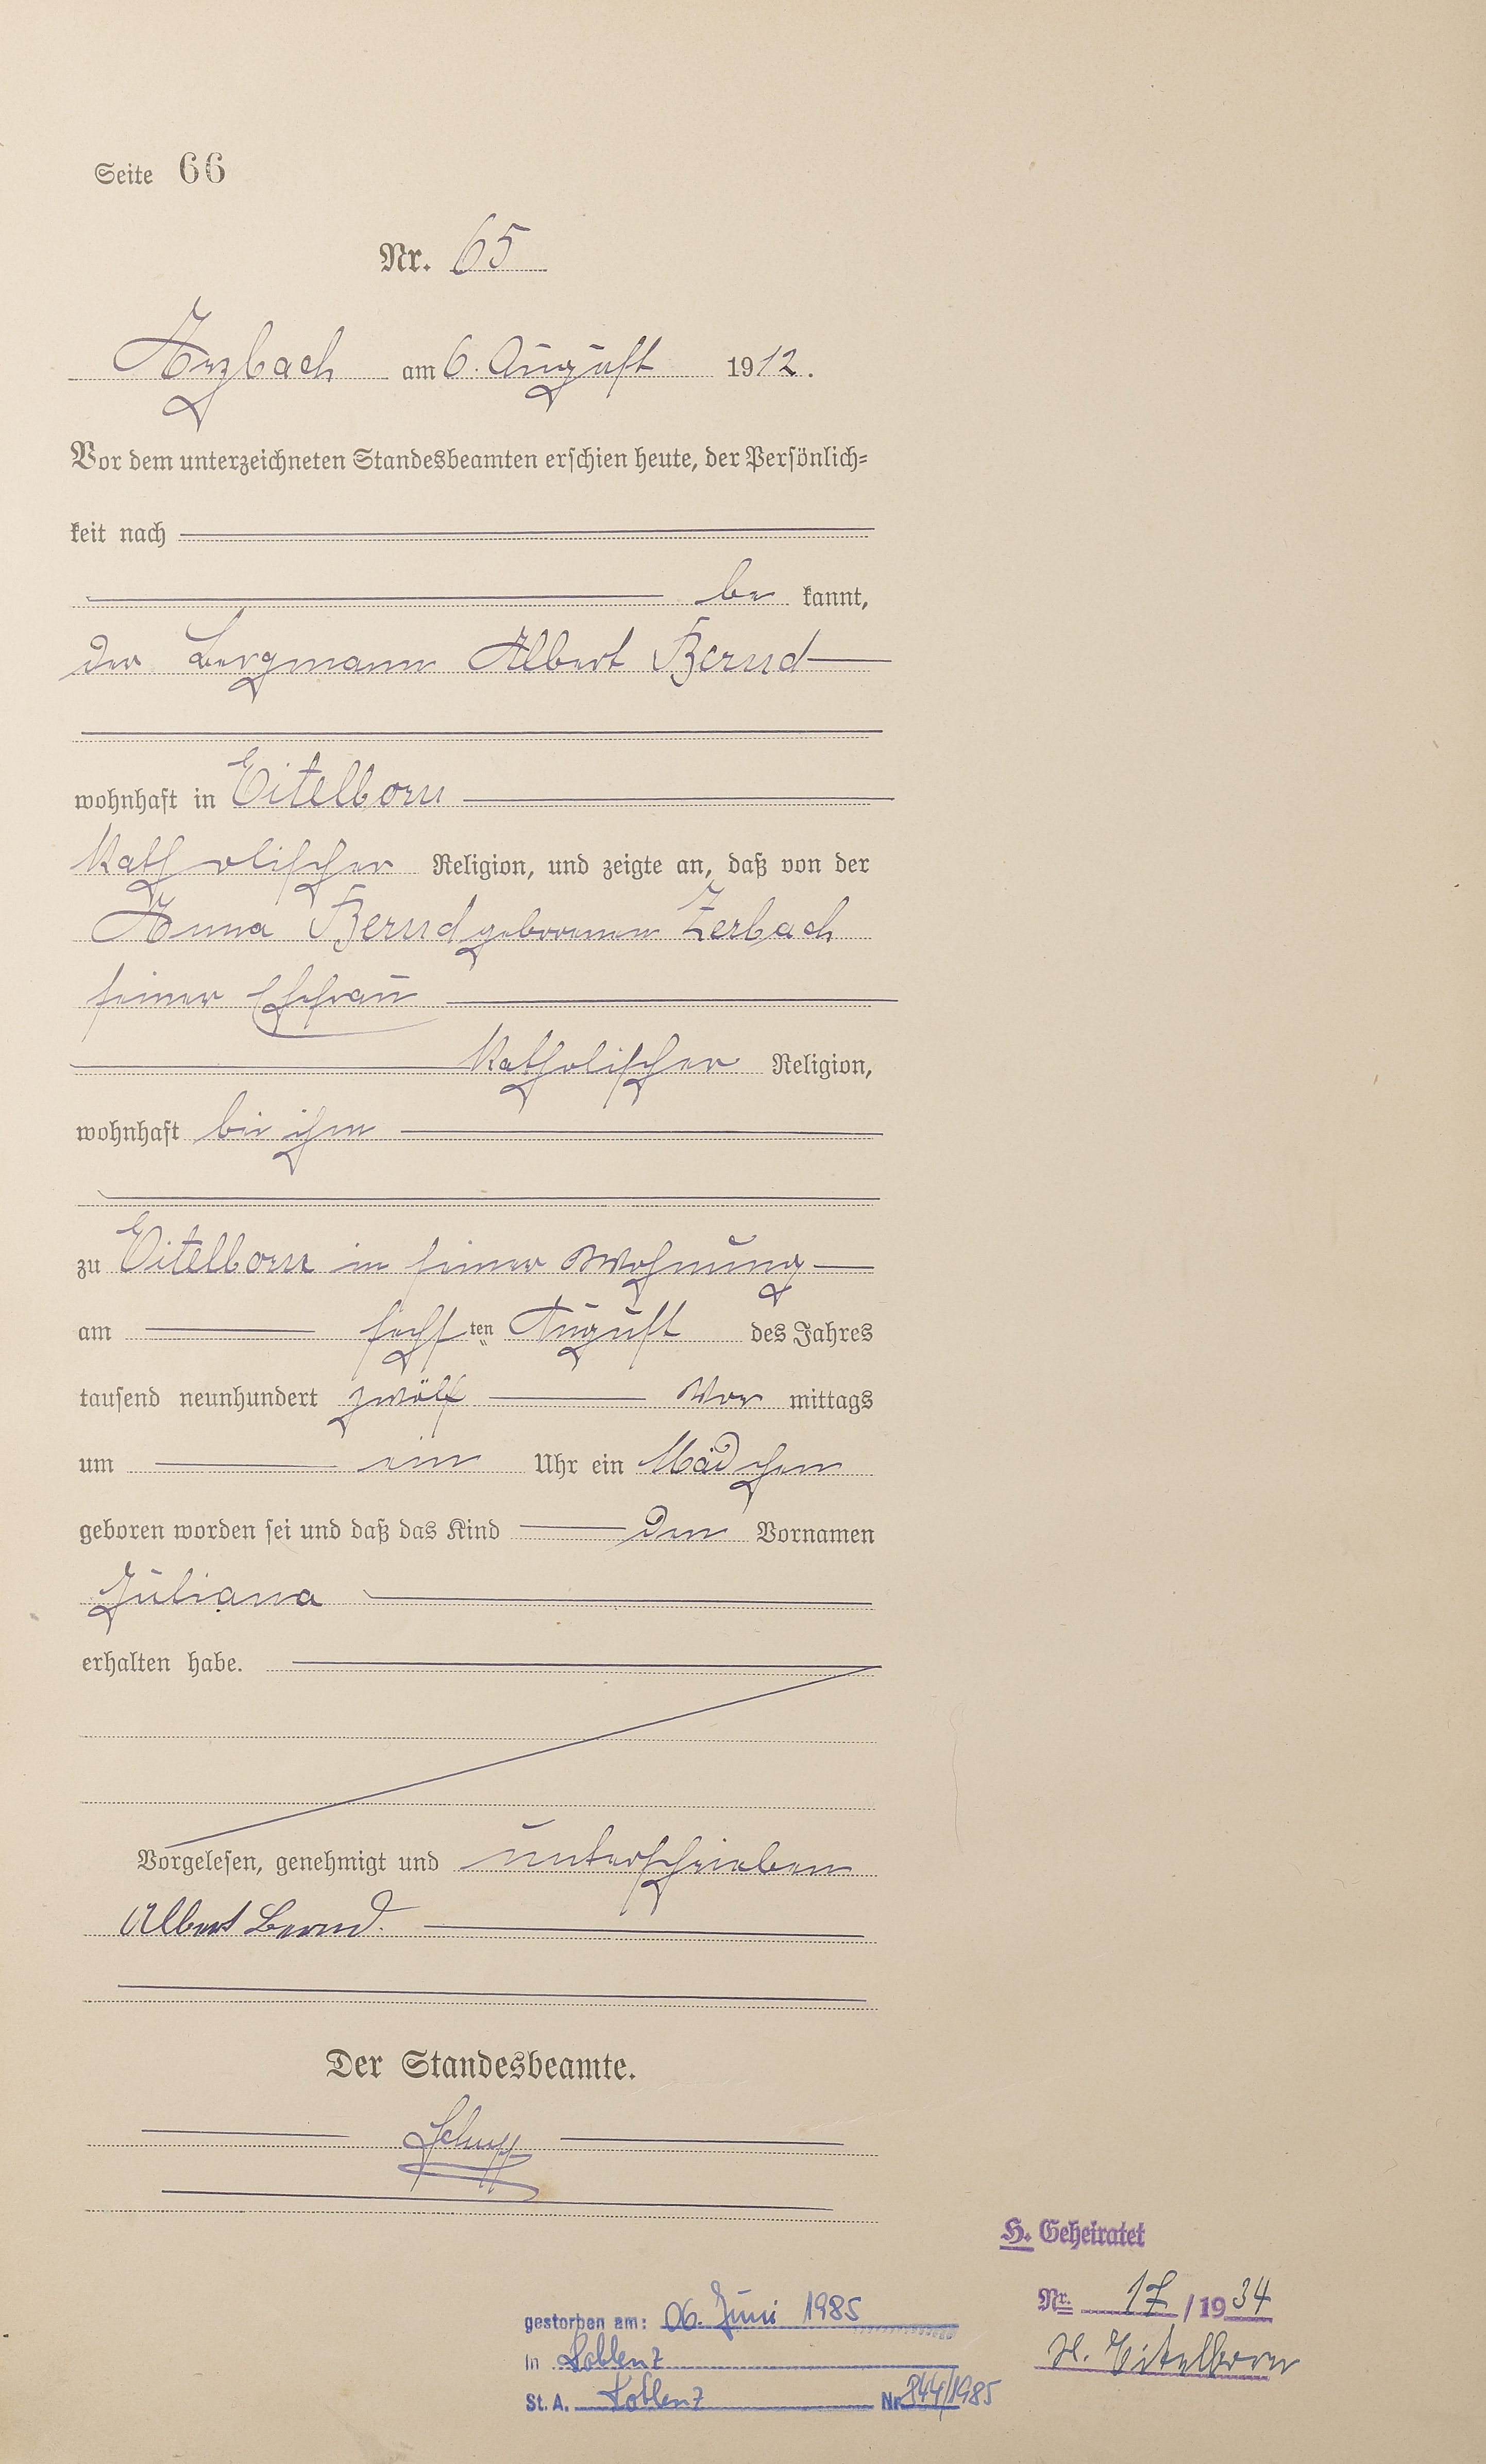 Seite 66
Nr. 65
Arzbach am 6. August 1912.
Vor dem unterzeichneten Standesbeamten erschien heute, der Persönlich-
keit nach
be kannt,
der Bergmann Albert Bernd
wohnhaft in Eitelborn
katholischer Religion, und zeigte an, daß von der
Anna Bernd geborenen Zerbach
seiner Ehefrau
katholischer Religion,
wohnhaft bei ihm
zu Eitelborn in seiner Wohnung
am sechsten August des Jahres
tausend neunhundert zwölf Vor mittags
um ein Uhr ein Mädchen
geboren worden sei und daß das Kind den Vornamen
Juliana
erhalten habe.
Vorgelesen, genehmigt und unterschrieben
Albert Bernd.
Der Standesbeamte.
Schupp
H. Geheiratet
Nr. 17/1934
St. Eitelborn
gestorben am: 06. Juni 1985
in Koblenz
St. A. Koblenz Nr. 844/1985